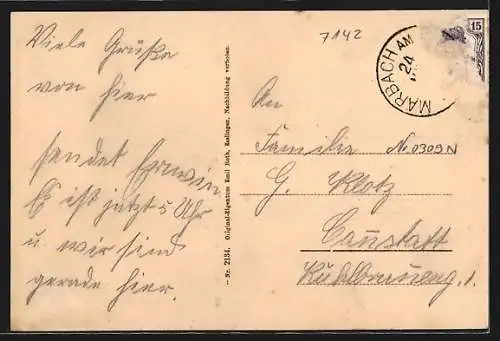 Viele Grüße
von hier
sendet Erwin
Es ist jetzt 5 Uhr
u. wir sind
gerade hier.
Nr. 2134. Original-Eigentum Emil Roth, Esslingen, Nachbildung verboten.
7142
MARBACH AM
24
15
An
Familie No 0309 N
G. Klotz
Canstatt